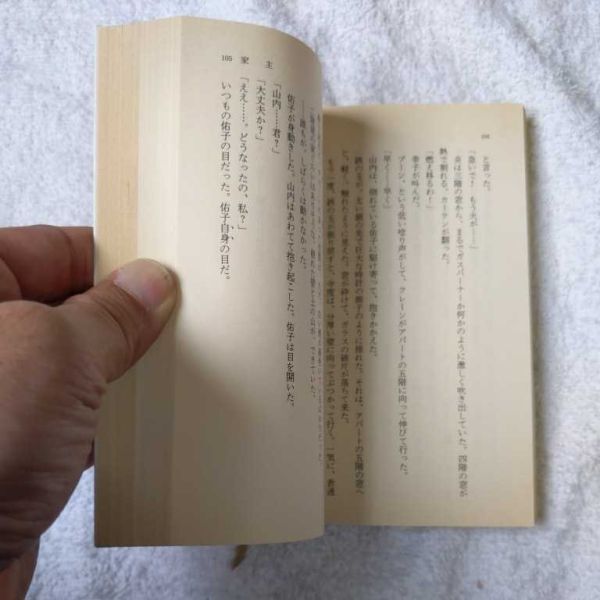 と言った。
「急いで！　もう火が――」
炎は三階の窓から、まるでガスバーナーか何かのように激しく吹き出していた。四階の窓が
熱で割れる。カーテンが翻った。
「燃え移るわ！」
幸子が叫んだ。
ブーン、という低い唸り声がして、クレーンがアパートの五階に向って伸びて行った。
「早く！　早く」
山内は、倒れている佑子に駆け寄って、抱きかかえた。
鉄の玉が、太い鎖の先で巨大な時計の振子のように揺れた。それは、アパートの五階の窓へ
と、軽く、触れたように見えた。窓が砕けて、ガラスの破片が落ちて来た。
もう一度、鉄の玉が振り戻すと、今度は、分厚い壁に向ってぶつかって行く。一気に、普通
105　家　主
……誰もが、しばらくは動かなかった。
佑子が身動きした。山内はあわてて抱き起こした。佑子は目を開いた。
「山内……君？」
「大丈夫か？」
「ええ……。どうなったの、私？」
いつもの佑子の目だった。佑子自身の目だ。